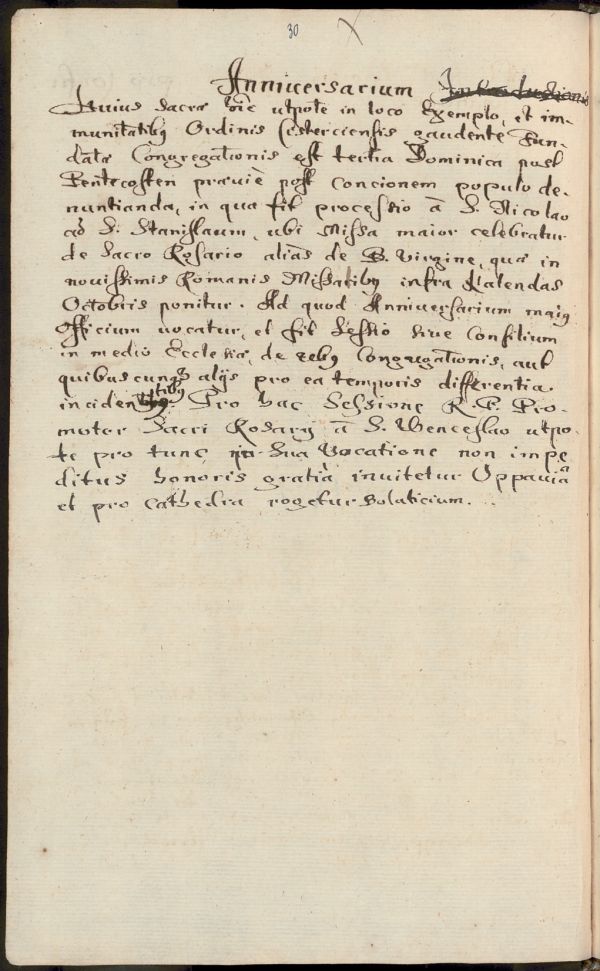 30
Anniuersarium
Huius Sacræ utpote in loco Exempto, et im-
munitatibꝯ Ordinis Cisterciensis gaudente Fun-
datæ Congregationis est tertia Dominica post
Pentecosten præuiè post concionem populo de-
nuntianda, in qua fit processio à S. Nicolao
ad S. Stanislaum, ubi Missa maior celebratur
de Sacro Rosario aliàs de B. Virgine, quæ in
nouissimis Romanis Missalibꝯ infra Kalendas
Octobris ponitur. Ad quod Anniuersarium maiꝯ
Officium uocatur, et fit Sessio siue Consilium
in medio Ecclesiæ, de rebꝯ Congregationis, aut
quibuscunqꝫ alijs pro ea temporis differentia
inciden tibꝯ. Pro hac Sessione R. P. Pro-
motor Sacri Rosarij à S. Wenceslao utpo-
te pro tunc in sua Vocatione non impe
ditus honoris gratiâ inuitetur Oppauiâ
et pro cathedra rogetur Solaticium.